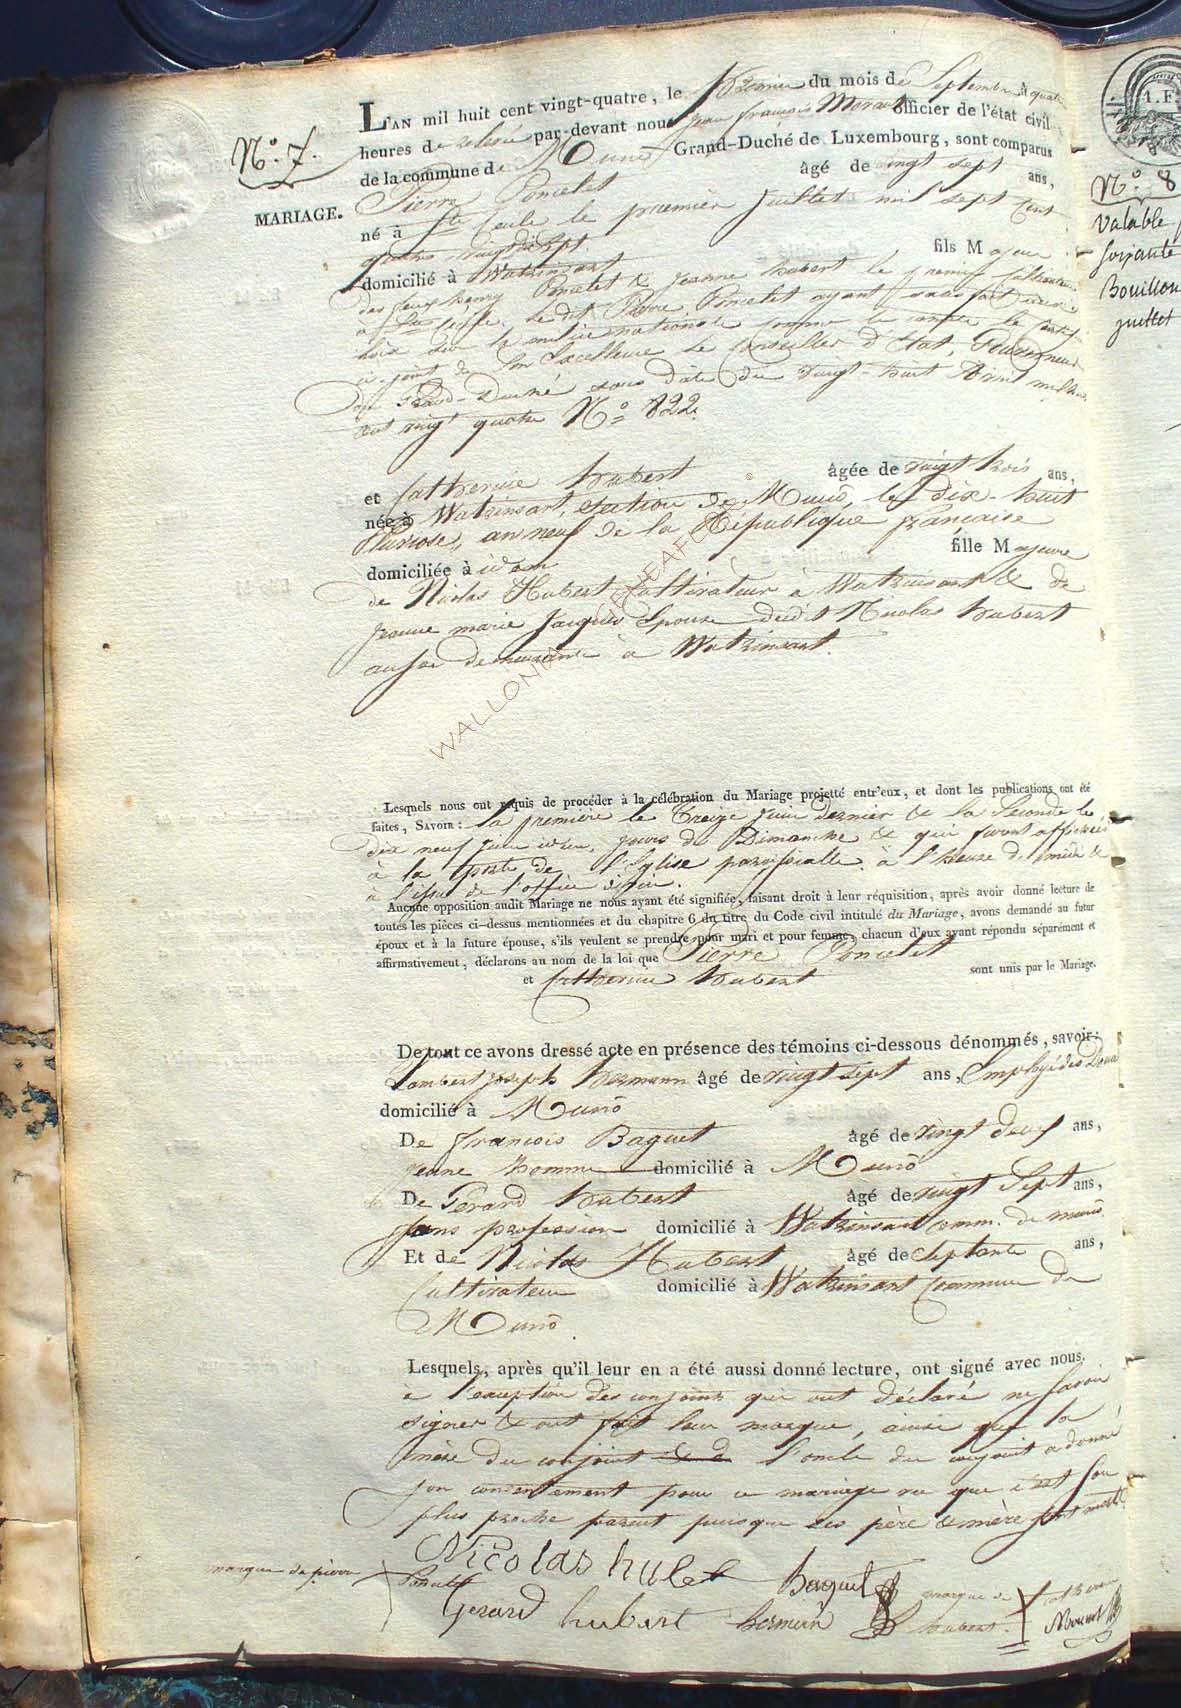 N.° 7.
MARIAGE.
L'AN mil huit cent vingt-quatre, le premier du mois de Septembre à quatre
heures de relevée par-devant nous Jean françois Monau officier de l'état civil
de la commune de Muno Grand-Duché de Luxembourg, sont comparus
Pierre Poncelet âgé de vingt sept ans,
né à Ste Cécile le premier Juillet mil sept cent
quatre vingt dix sept
domicilié à Watrinsart fils Majeur
des feux henry Poncelet & Jeanne hubert le premier cultivateur
à Ste Cécile. le dit Pierre Poncelet ayant satisfait aux
loix sur la milice nationale comme le
ci-joint de Son Excellence le Conseiller d'Etat, Gouverneur
du Grand-Duché sous date du vingt-huit Avril mil huit
cent vingt quatre N° 822.
et Catherine hubert âgée de vingt trois ans,
née à Watrinsart, section de Muno, le dix-huit
Pluviose, an neuf de la République française
domiciliée à idem fille Majeure
de Nicolas Hubert Cultivateur à Watrinsart & de
Jeanne marie Jacques Epouse dudit Nicolas hubert
aussi demeurante à Watrinsart.
WALLONIA GENEAFLUX
Lesquels nous ont requis de procéder à la célébration du Mariage projetté entr'eux, et dont les publications ont été
faites, SAVOIR : la première le Treize Juin dernier & la Seconde le
dix neuf Juin idem, jours de Dimanche & qui furent affichées
à la porte de l'Eglise paroissialle à l'heure de midi &
à l'issue de l'office divin.
Aucune opposition audit Mariage ne nous ayant été signifiée, faisant droit à leur réquisition, après avoir donné lecture de
toutes les pièces ci-dessus mentionnées et du chapitre 6 du titre du Code civil intitulé du Mariage, avons demandé au futur
époux et à la future épouse, s'ils veulent se prendre pour mari et pour femme, chacun d'eux ayant répondu séparément et
affirmativement, déclarons au nom de la loi que Pierre Poncelet
et Catherine hubert sont unis par le Mariage.
De tout ce avons dressé acte en présence des témoins ci-dessous dénommés, savoir :
Lambert Joseph hermann âgé de vingt sept ans, Employé des Doua
domicilié à Muno
De françois Baguet âgé de vingt deux ans,
jeune homme domicilié à Muno
De Gérard hubert âgé de vingt Sept ans,
sans profession domicilié à Watrinsart comm. de muno
Et de Nicolas Hubert âgé de Septante ans,
Cultivateur domicilié à Watrinsart commune de
Muno.
Lesquels, après qu'il leur en a été aussi donné lecture, ont signé avec nous.
à l'exception des conjoints qui ont déclaré ne savoir
signer & ont fait leur marque, ainsi que la
mère du conjoint & d l'oncle du conjoint a donné
son consentement pour ce mariage vu que c'est son
plus proche parent puisque ses père & mère sont morts
Nicolas hubet Baguet
marque de pierre Poncelet
Gerard hubert hermann
marque de catherine
hubert. Monau
1. F.
N.° 8
Valable
soixante
Bouillon
juillet